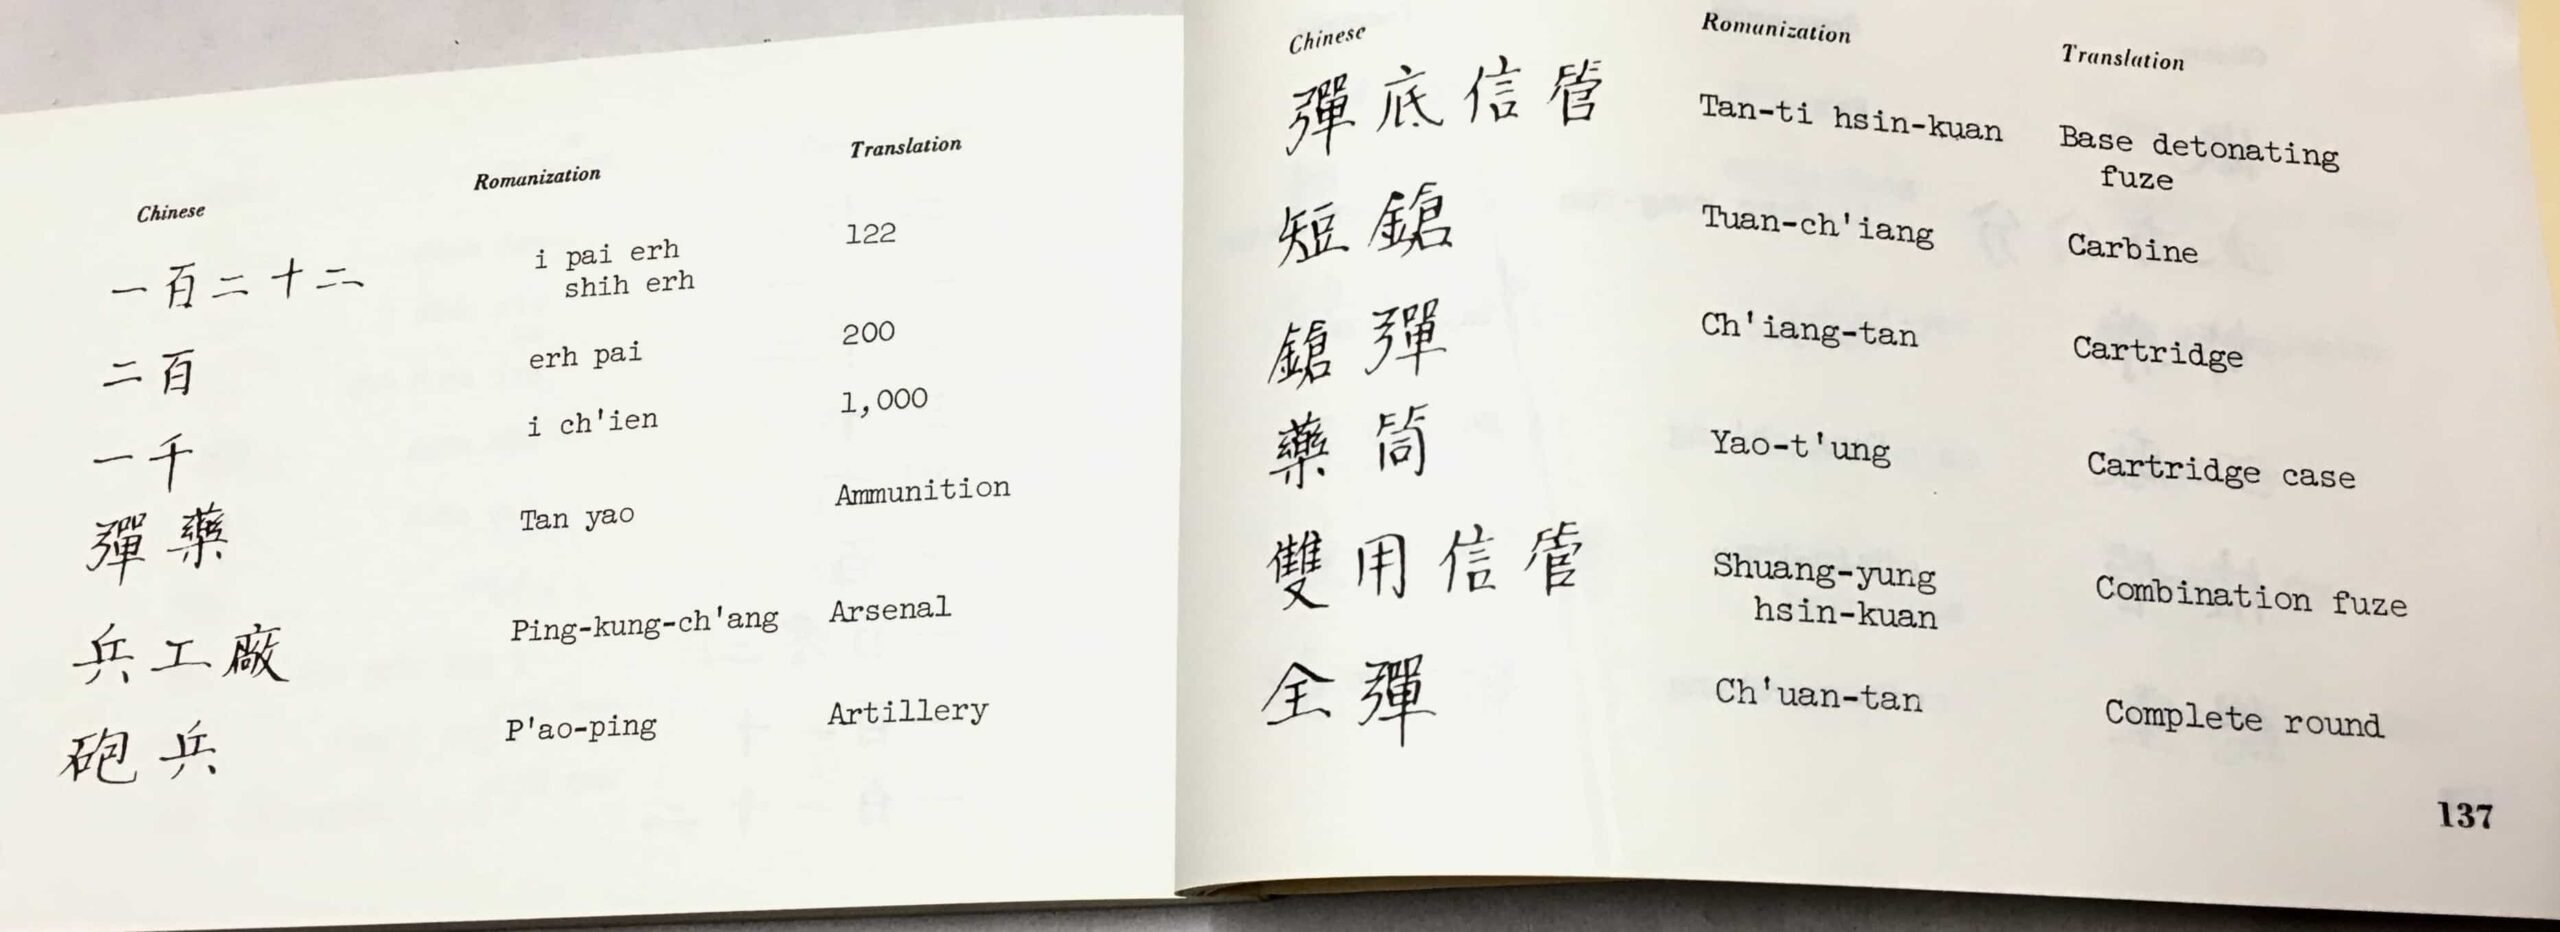 Chinese Romanization Translation
一百二十二 i pai erh 122
shih erh
二百 erh pai 200
一千 i ch'ien 1,000
彈藥 Tan yao Ammunition
兵工廠 Ping-kung-ch'ang Arsenal
砲兵 P'ao-ping Artillery
Chinese Romanization Translation
彈底信管 Tan-ti hsin-kuan Base detonating
fuze
短鎗 Tuan-ch'iang Carbine
鎗彈 Ch'iang-tan Cartridge
藥筒 Yao-t'ung Cartridge case
雙用信管 Shuang-yung Combination fuze
hsin-kuan
全彈 Ch'uan-tan Complete round
137